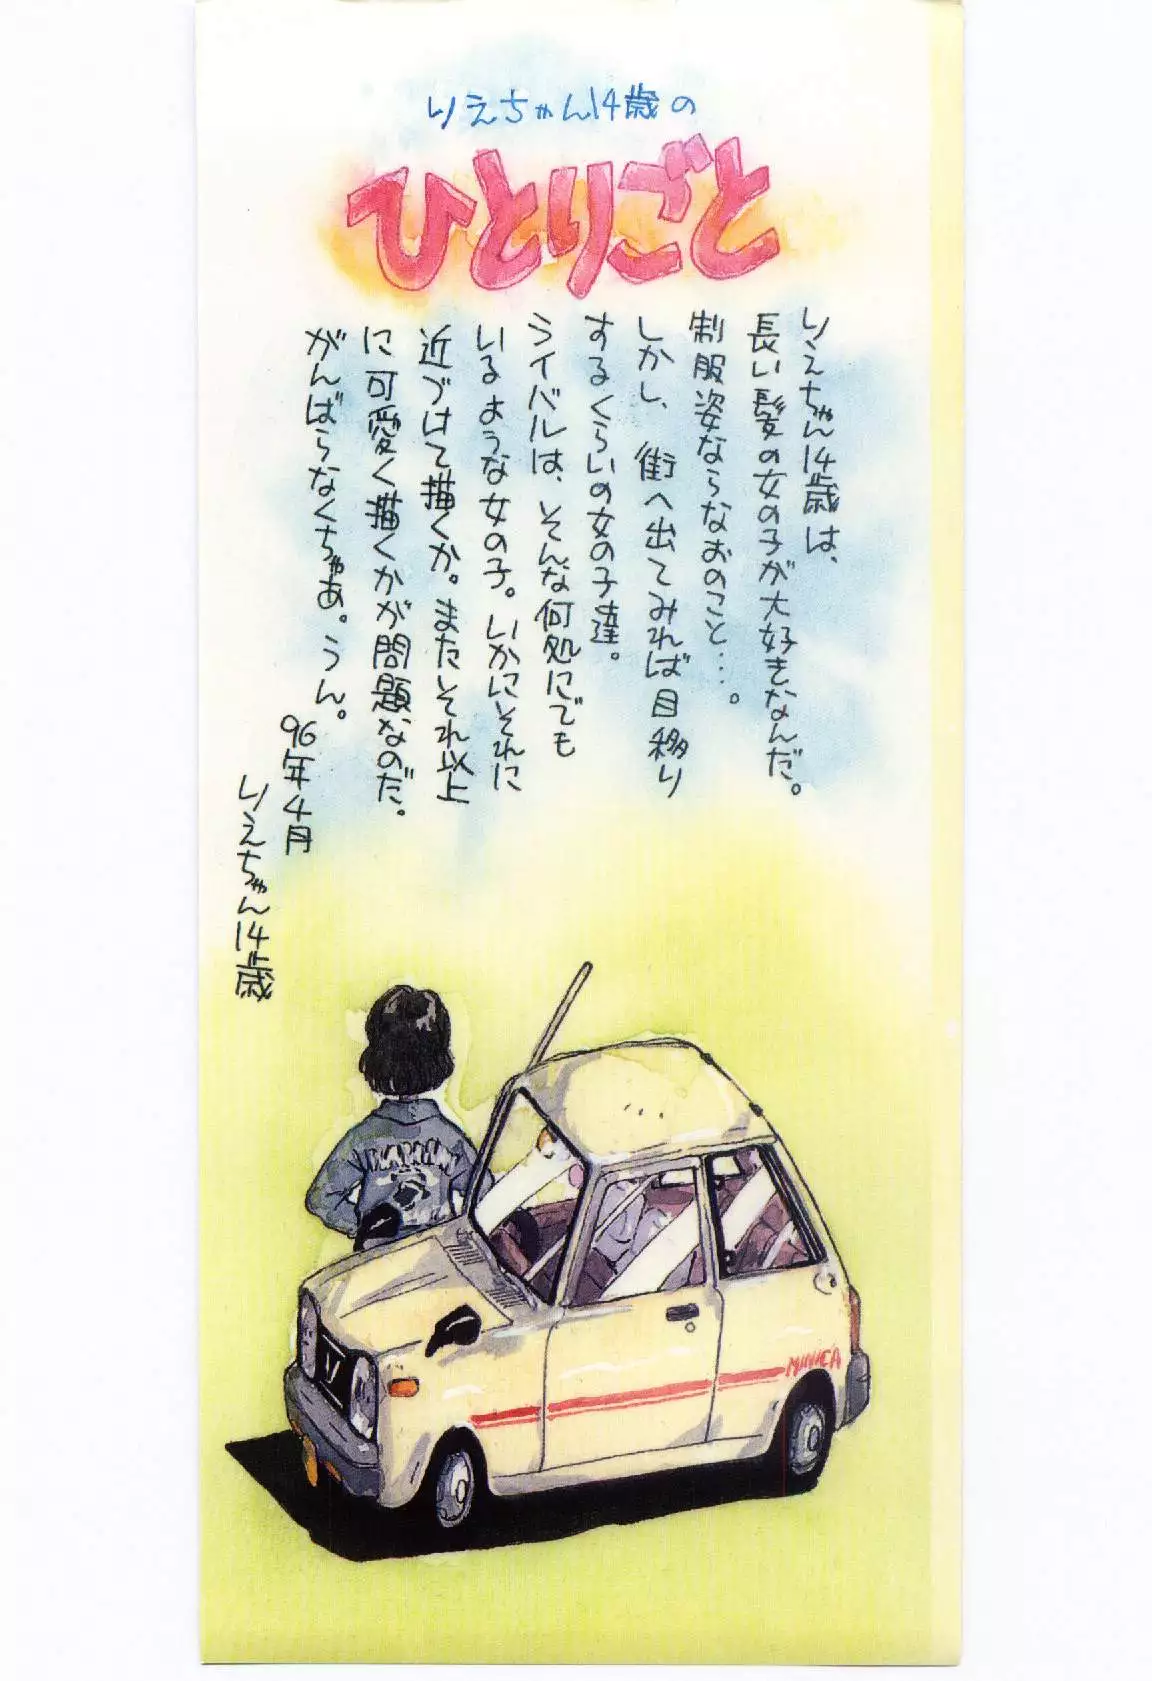 りえちゃん14歳の
ひとりごと
りえちゃん14歳は、
長い髪の女の子が大好きなんだ。
制服姿ならなおのこと…。
しかし、街へ出てみれば目移り
するくらいの女の子達。
ライバルは、そんな何処にでも
いるような女の子。いかにそれに
近づけて描くか。またそれ以上
に可愛く描くかが問題なのだ。
がんばらなくちゃあ。うん。
96年4月
りえちゃん14歳
MINICA